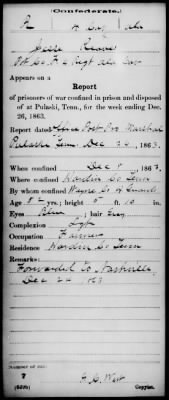 Confederate.
Jesse
Appears on a
Report
of prisoners of war confined in prison and disposed
of at Pulaski, Tenn., for the week ending Dec.
26, 1863.
Report dated Office Post Pro Marshal
Pulaski Tenn Dec 26, 1863.
When confined Dec 8, 1863.
Where confined Hardin Co Tenn
By whom confined Wayne Co
Age height ft. 10 in.
Eyes Blue; hair Grey
Complexion Lgt
Occupation Farmer
Residence Hardin Co Tenn
Remarks:
Forwarded to Nashville,
Dec 24 63
Number of roll:
7
(639b) Copyist.